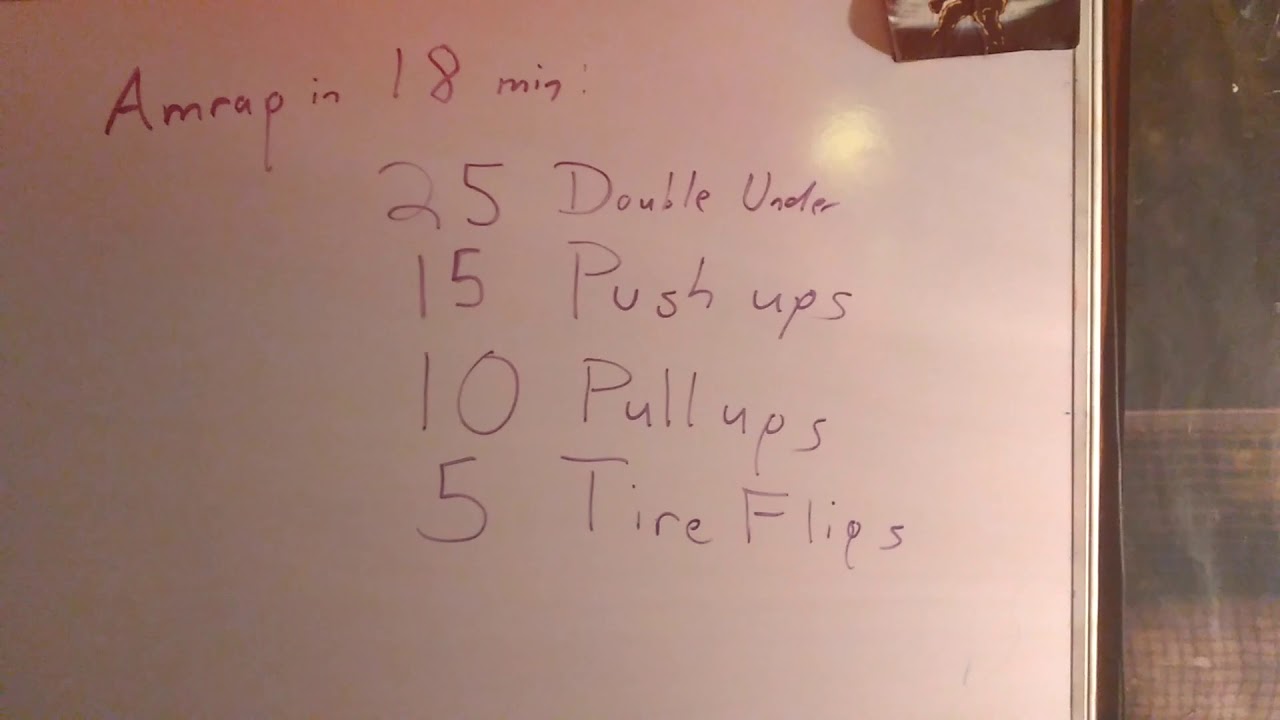 Amrap in 18 min:
25 Double Under
15 Push ups
10 Pull ups
5 Tire Flips